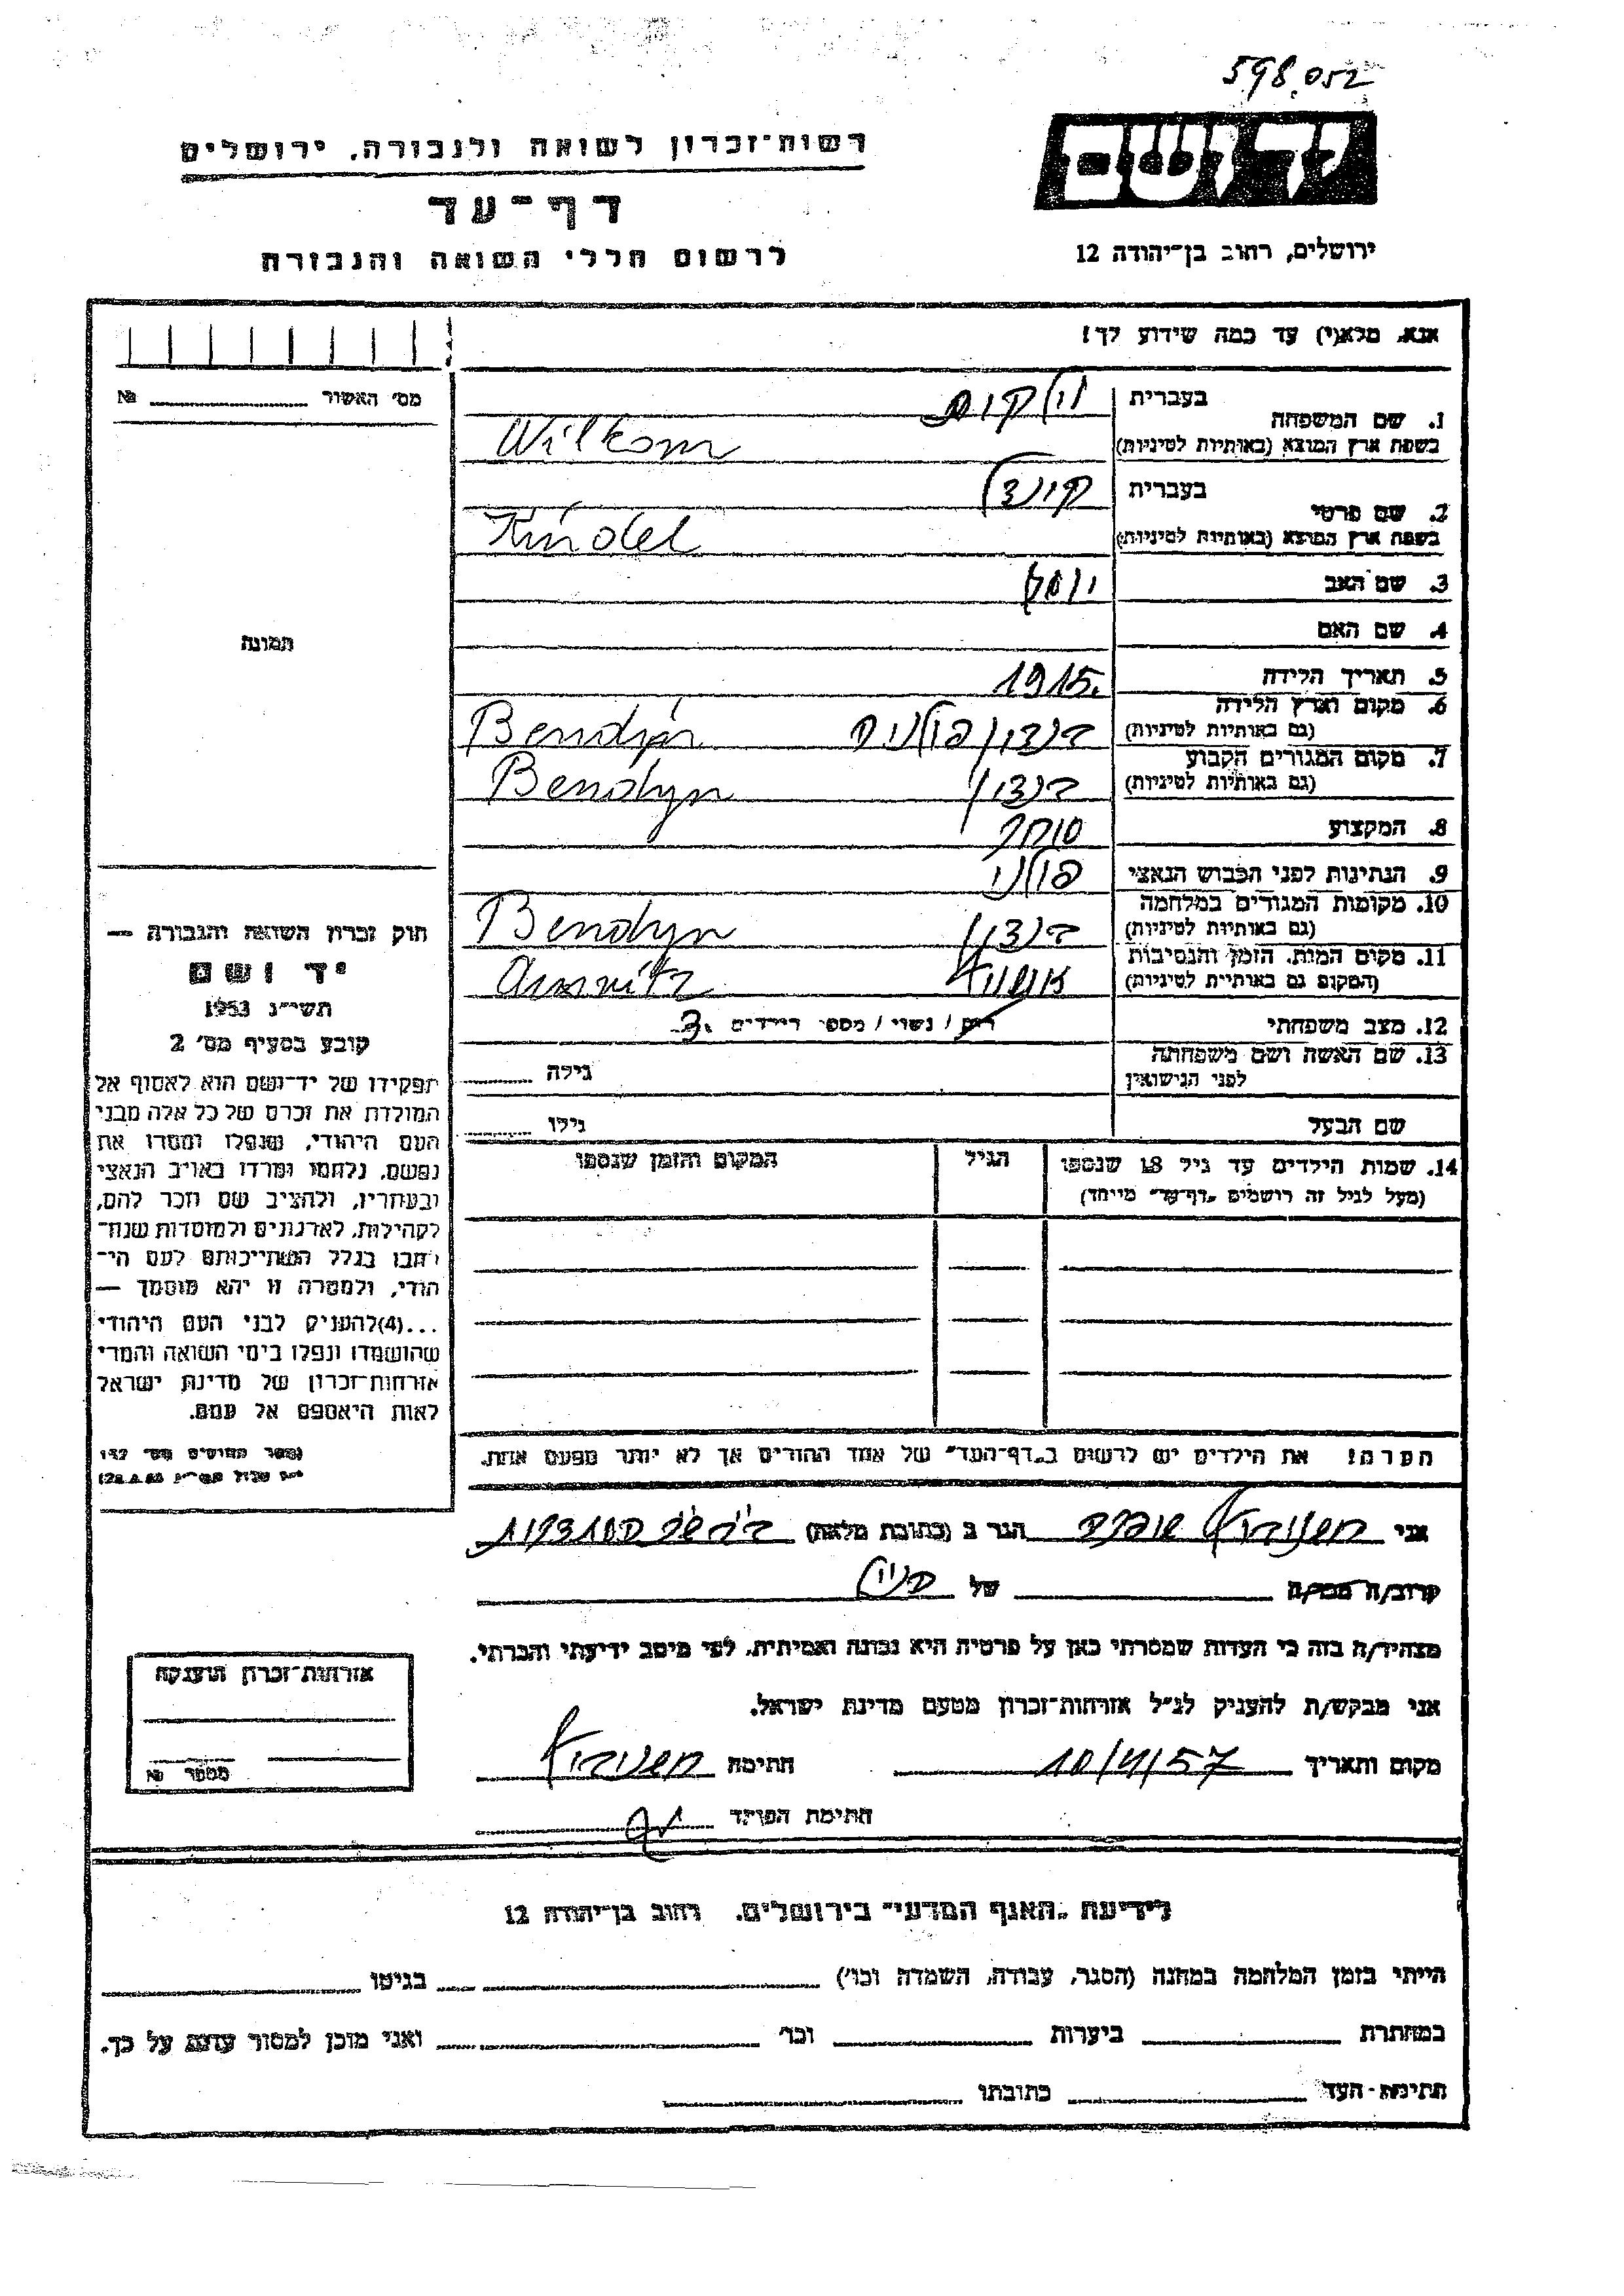 598.052
רשות-זכרון לשואה ולגבורה, ירושלים
דף-עד
לרשום חללי השואה והגבורה
יד ושם
ירושלים, רחוב בן-יהודה 12
אנא, מלא(י) עד כמה שידוע לך!
מס' האשור №
תמונה
1. שם המשפחה
בעברית
בשפת ארץ המוצא (באותיות לטיניות)
Wilkom
2. שם פרטי
בעברית
בשפת ארץ המוצא (באותיות לטיניות)
Kindel
3. שם האב
4. שם האם
5. תאריך הלידה 1915.
6. מקום וארץ הלידה
(גם באותיות לטיניות) בנדין פולניה Bendyn
7. מקום המגורים הקבוע
(גם באותיות לטיניות) בנדין Bendyn
8. המקצוע סוחר
9. הנתינות לפני הכבוש הנאצי פולני
10. מקומות המגורים במלחמה
(גם באותיות לטיניות) בנדין Bendyn
11. מקום המות, הזמן והנסיבות
(המקום גם באותיות לטיניות)
12. מצב משפחתי רווק / נשוי / מספר הילדים 3.
13. שם האשה ושם משפחתה
לפני הנישואין גילה
שם הבעל גילו
14. שמות הילדים עד גיל 18 שנספו הגיל המקום והזמן שנספו
(מעל לגיל זה רושמים "דף-עד" מיוחד)
הערה! את הילדים יש לרשום ב"דף-העד" של אחד ההורים אך לא יותר מפעם אחת.
חוק זכרון השואה והגבורה —
יד ושם
תשי"ג 1953
קובע בסעיף מס' 2
תפקידו של יד-ושם הוא לאסוף אל
המולדת את זכרם של כל אלה מבני
העם היהודי, שנפלו ומסרו את
נפשם, נלחמו ומרדו באויב הנאצי
ובעוזריו, ולהציב שם וזכר להם,
לקהילות, לארגונים ולמוסדות שנח-
רבו בגלל השתייכותם לעם הי-
הודי, ולמטרה זו יהא מוסמך —
...(4)להעניק לבני העם היהודי
שהושמדו ונפלו בימי השואה והמרי
אזרחות-זכרון של מדינת ישראל
לאות היאספם אל עמם.
אני הגר ב (כתובת מלאה)
קרוב/ה מכר/ה של
מצהיר/ה בזה כי העדות שמסרתי כאן על פרטיה היא נכונה ואמיתית, לפי מיטב ידיעתי והכרתי.
אני מבקש/ת להעניק לנ"ל אזרחות-זכרון מטעם מדינת ישראל.
מקום ותאריך חתימה
חתימת הפוקד
אזרחות-זכרון הוענקה
מספר №
לידיעת "האגף המדעי" בירושלים, רחוב בן-יהודה 12
הייתי בזמן המלחמה במחנה (הסגר, עבודה, השמדה וכו') בגיטו
במחתרת ביערות וכו' ואני מוכן למסור עדות על כך.
חתימת-העד כתובתו